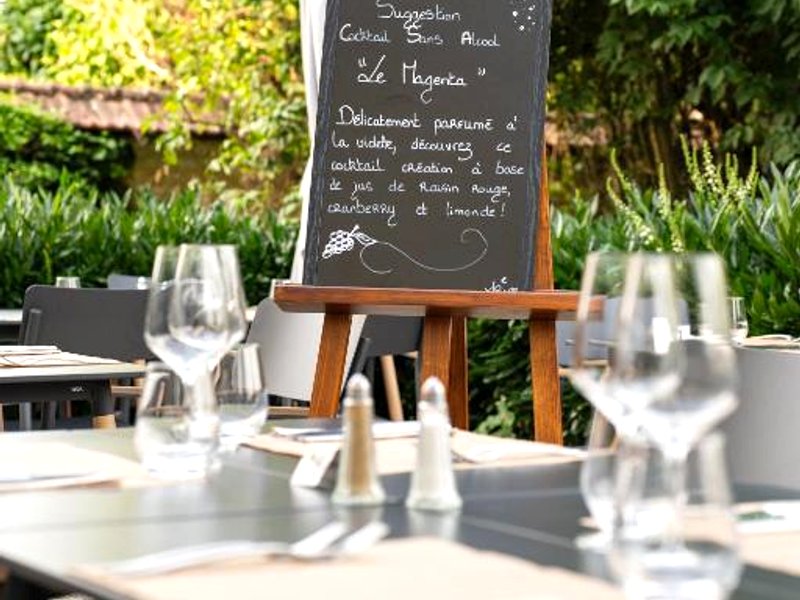 Suggestion
Cocktail Sans Alcool
"Le Magenta"
Délicatement parfumé à
la violette, découvrez ce
cocktail création à base
de jus de raisin rouge,
cranberry et limonde !